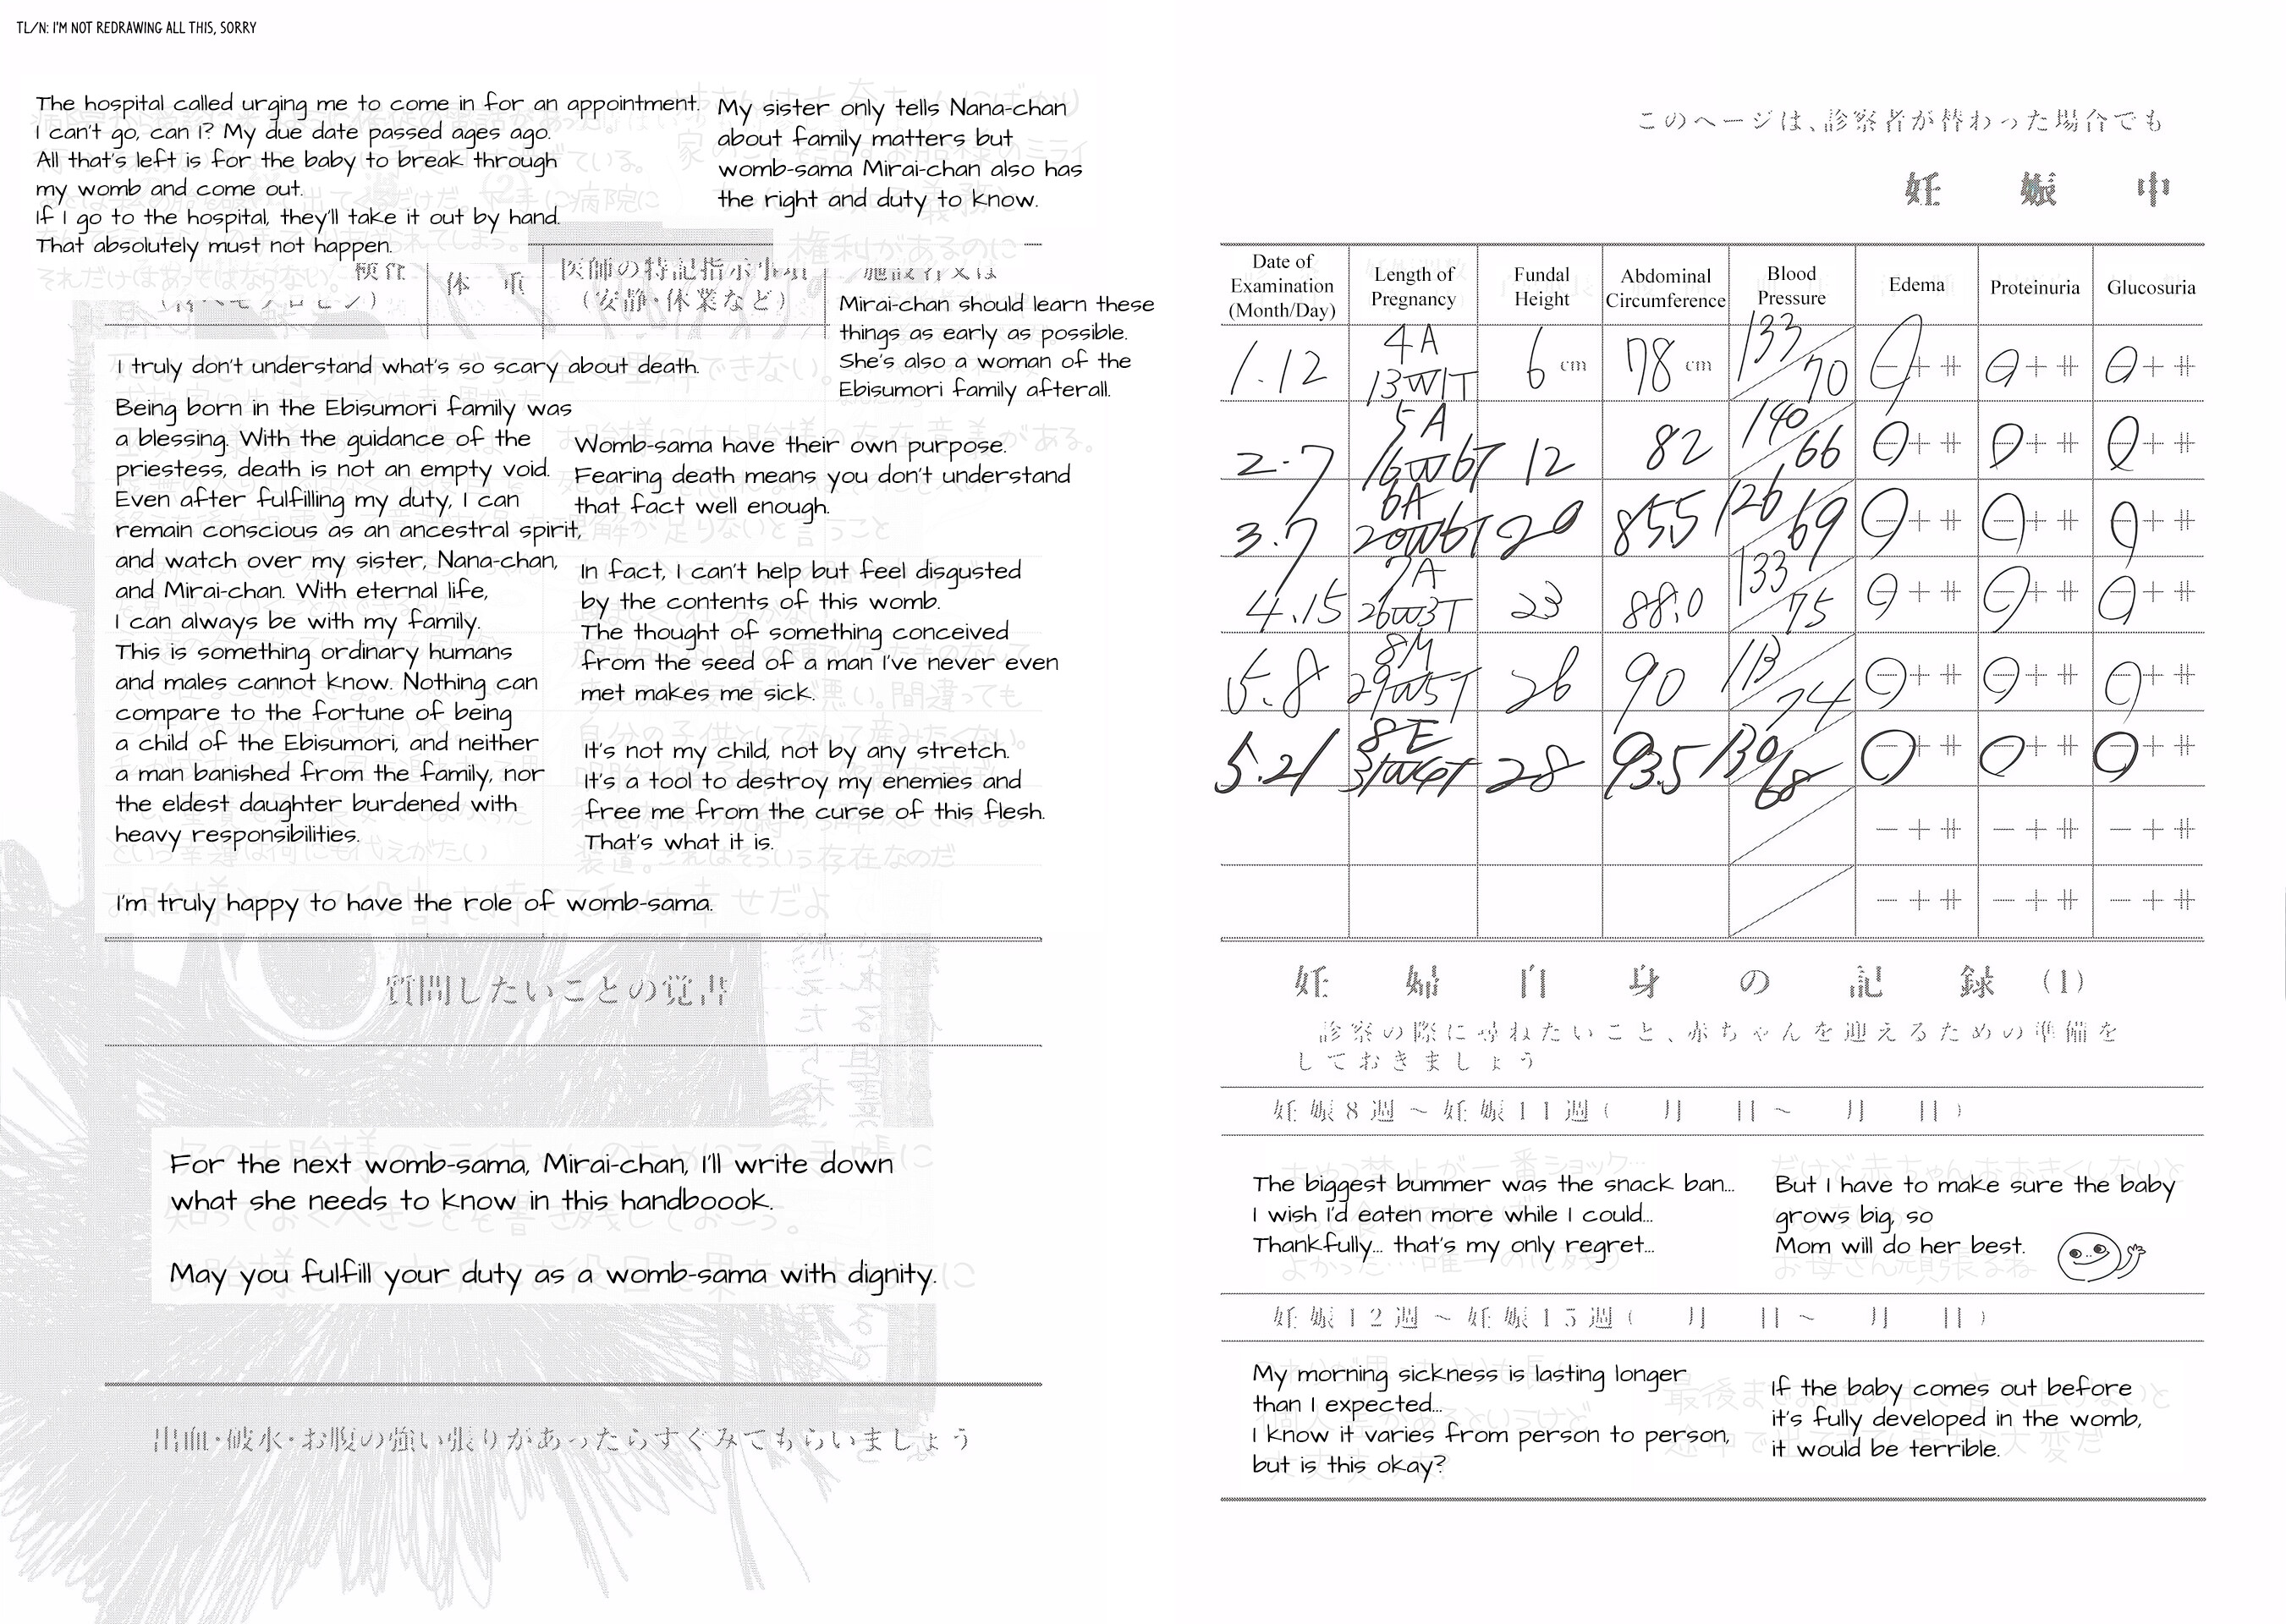 TL/N: I'M NOT REDRAWING ALL THIS, SORRY
このページは、診察者が替わった場合でも
妊 娠 中
Date of Examination (Month/Day)
Length of Pregnancy
Fundal Height
Abdominal Circumference
Blood Pressure
Edema
Proteinuria
Glucosuria
1.12 4A 13W1T 6 cm 78 cm 133/70 - + ++ - + ++ - + ++
2.7 5A 16W6T 12 82 140/66 - + ++ - + ++ - + ++
3.7 6A 20W6T 20 855 126/69 - + ++ - + ++ - + ++
4.15 7A 26W3T 23 88.0 133/75 - + ++ - + ++ - + ++
5.8 8M 29W5T 26 90 113/74 - + ++ - + ++ - + ++
5.21 8E 28 93.5 130/68 - + ++ - + ++ - + ++
- + ++ - + ++ - + ++
- + ++ - + ++ - + ++
妊 婦 自 身 の 記 録 (1)
診察の際に尋ねたいこと、赤ちゃんを迎えるための準備を
しておきましょう
妊娠8週~妊娠11週( 月 日~ 月 日)
The biggest bummer was the snack ban...
I wish I'd eaten more while I could...
Thankfully... that's my only regret...
But I have to make sure the baby
grows big, so
Mom will do her best.
妊娠12週~妊娠15週( 月 日~ 月 日)
My morning sickness is lasting longer
than I expected...
I know it varies from person to person,
but is this okay?
If the baby comes out before
it's fully developed in the womb,
it would be terrible.
The hospital called urging me to come in for an appointment.
I can't go, can I? My due date passed ages ago.
All that's left is for the baby to break through
my womb and come out.
If I go to the hospital, they'll take it out by hand.
That absolutely must not happen.
My sister only tells Nana-chan
about family matters but
womb-sama Mirai-chan also has
the right and duty to know.
体 重
医師の特記指示事項
(安静・休業など)
施設名又は
Mirai-chan should learn these
things as early as possible.
She's also a woman of the
Ebisumori family afterall.
I truly don't understand what's so scary about death.
Being born in the Ebisumori family was
a blessing. With the guidance of the
priestess, death is not an empty void.
Even after fulfilling my duty, I can
remain conscious as an ancestral spirit,
and watch over my sister, Nana-chan,
and Mirai-chan. With eternal life,
I can always be with my family.
This is something ordinary humans
and males cannot know. Nothing can
compare to the fortune of being
a child of the Ebisumori, and neither
a man banished from the family, nor
the eldest daughter burdened with
heavy responsibilities.
Womb-sama have their own purpose.
Fearing death means you don't understand
that fact well enough.
In fact, I can't help but feel disgusted
by the contents of this womb.
The thought of something conceived
from the seed of a man I've never even
met makes me sick.
It's not my child, not by any stretch.
It's a tool to destroy my enemies and
free me from the curse of this flesh.
That's what it is.
I'm truly happy to have the role of womb-sama.
質問したいことの覚書
For the next womb-sama, Mirai-chan, I'll write down
what she needs to know in this handboook.
May you fulfill your duty as a womb-sama with dignity.
出血・破水・お腹の強い張りがあったらすぐみてもらいましょう